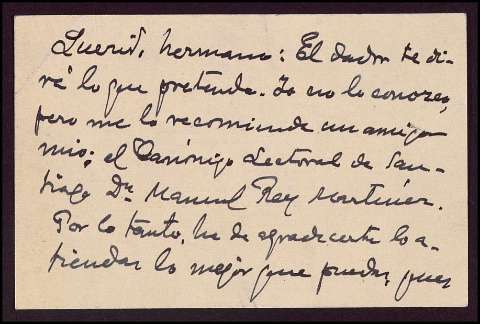 Querido hermano: El dador te di-
rá lo que pretende. Yo no lo conozco,
pero me lo recomienda un amigo
mio; el Canónigo Lectoral de San-
tiago Dr. Manuel Rey Martínez.
Por lo tanto, he de agradecerte lo a-
tiendas lo mejor que puedas, pues